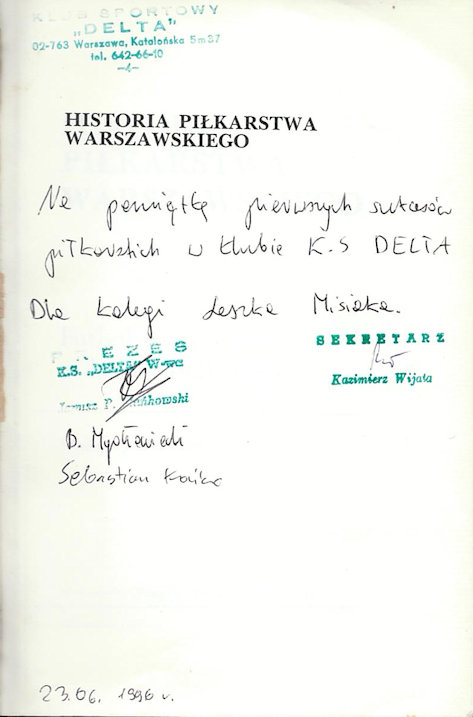 KLUB SPORTOWY
„DELTA”
02-763 Warszawa, Katalońska 5m37
tel. 642-66-10
—4—
HISTORIA PIŁKARSTWA
WARSZAWSKIEGO
Na pamiątkę pierwszych sukcesów
piłkarskich w klubie K.S DELTA
Dla kolegi Leszka Misiaka.
PREZES
K.S. „DELTA” W-wa
Janusz P.
SEKRETARZ
Kazimierz Wijata
B. Mysłowiecki
Sebastian
23.06. 1996 r.